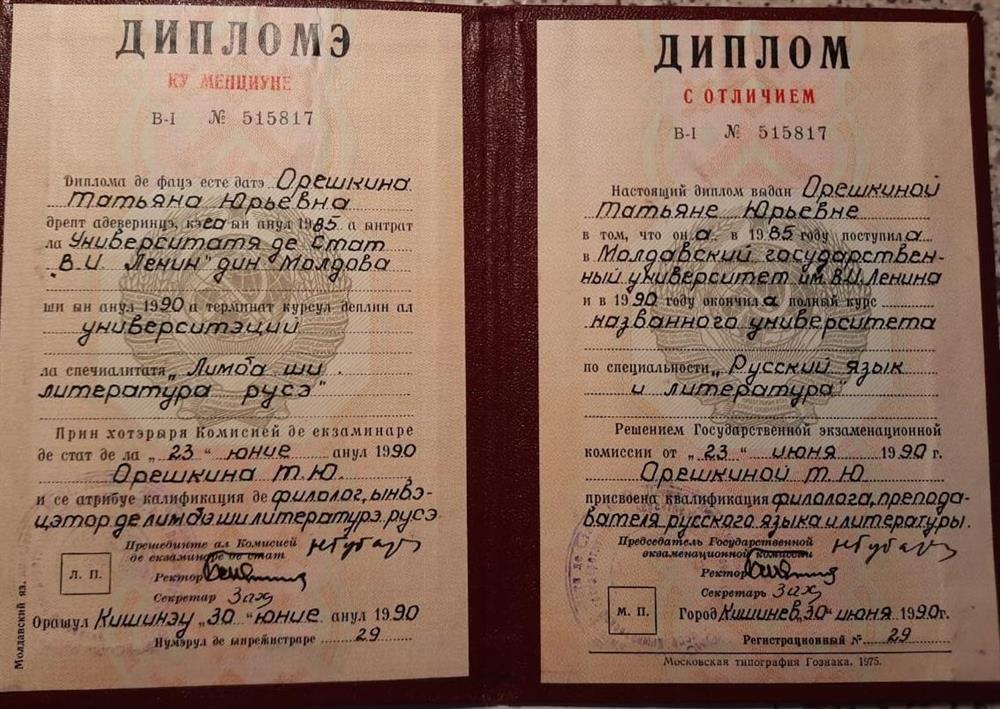 ДИПЛОМЭ
КУ МЕНЦИУНЕ
В-I № 515817
Диплома де фацэ есте датэ Орешкина
Татьяна Юрьевна
дрепт адеверинцэ, кэ еа ын анул 1985 а ынтрат
ла Университатя де Стат
"В.И. Ленин" дин Молдова
ши ын анул 1990 а терминат курсул деплин ал
университэций
ла спечиалитатя "Лимба ши
литература русэ"
Прин хотэрыря Комисией де екзаминаре
де стат де ла "23" юние анул 1990
Орешкина Т.Ю.
и се атрибуе калификация де филолог, ынвэ-
цэтор де лимбэ ши литературэ русэ
Прешединте ал Комисией
де екзаминаре де стат
Л. П.
Ректор
Секретар Зах
Орашул Кишинэу "30" юние анул 1990
Нумэрул де ынрежистраре 29
Молдавский яз.
ДИПЛОМ
С ОТЛИЧИЕМ
В-I № 515817
Настоящий диплом выдан Орешкиной
Татьяне Юрьевне
в том, что она в 1985 году поступила
в Молдавский государствен-
ный университет им. В.И. Ленина
и в 1990 году окончила полный курс
названного университета
по специальности "Русский язык
и литература"
Решением Государственной экзаменационной
комиссии от "23" июня 1990 г.
Орешкиной Т.Ю.
присвоена квалификация филолога, препода-
вателя русского языка и литературы.
Председатель Государственной
экзаменационной комиссии
Ректор
Секретарь Зах
М. П.
Город Кишинев "30" июня 1990 г.
Регистрационный № 29
Московская типография Гознака. 1975.